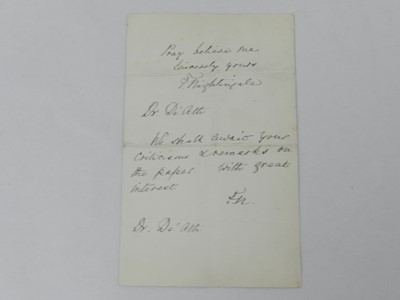 Pray believe me
sincerely yours
F Nightingale
Dr De'Ath
We shall await your
criticisms & remarks on
the paper with great
interest
F.N.
Dr. De'Ath